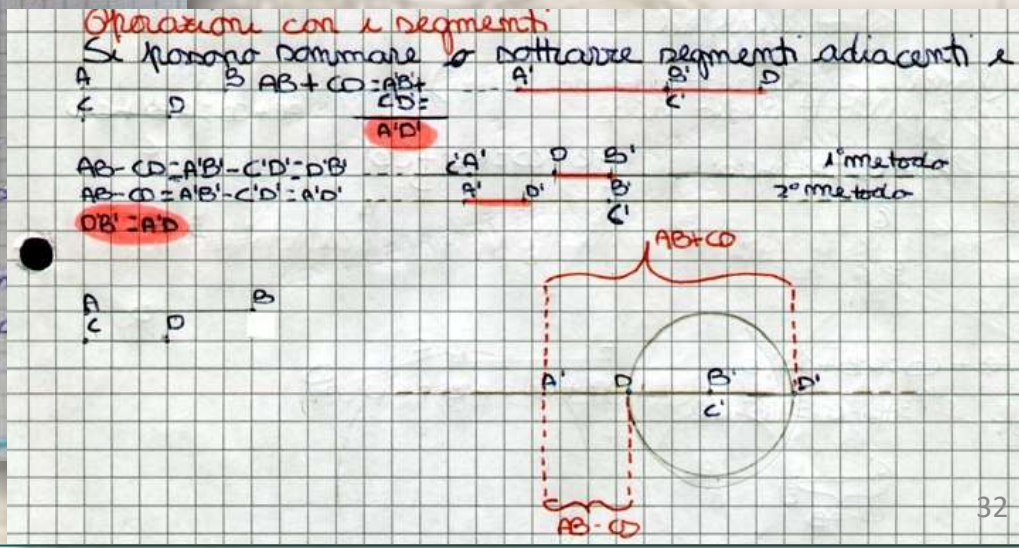 Operazione con i segmenti
Si possono sommare o sottrarre segmenti adiacenti e
A B AB+CD=A'B'+ A' B' D
C D C'D'= C'
A'D'
AB-CD=A'B'-C'D'=D'B' C'A' D B' 1° metodo
AB-CD=A'B'-C'D'=A'D' A' D' B' 2° metodo
DB'=A'D C'
AB+CD
A B
C D
A' D B' D'
C'
AB-CD
32